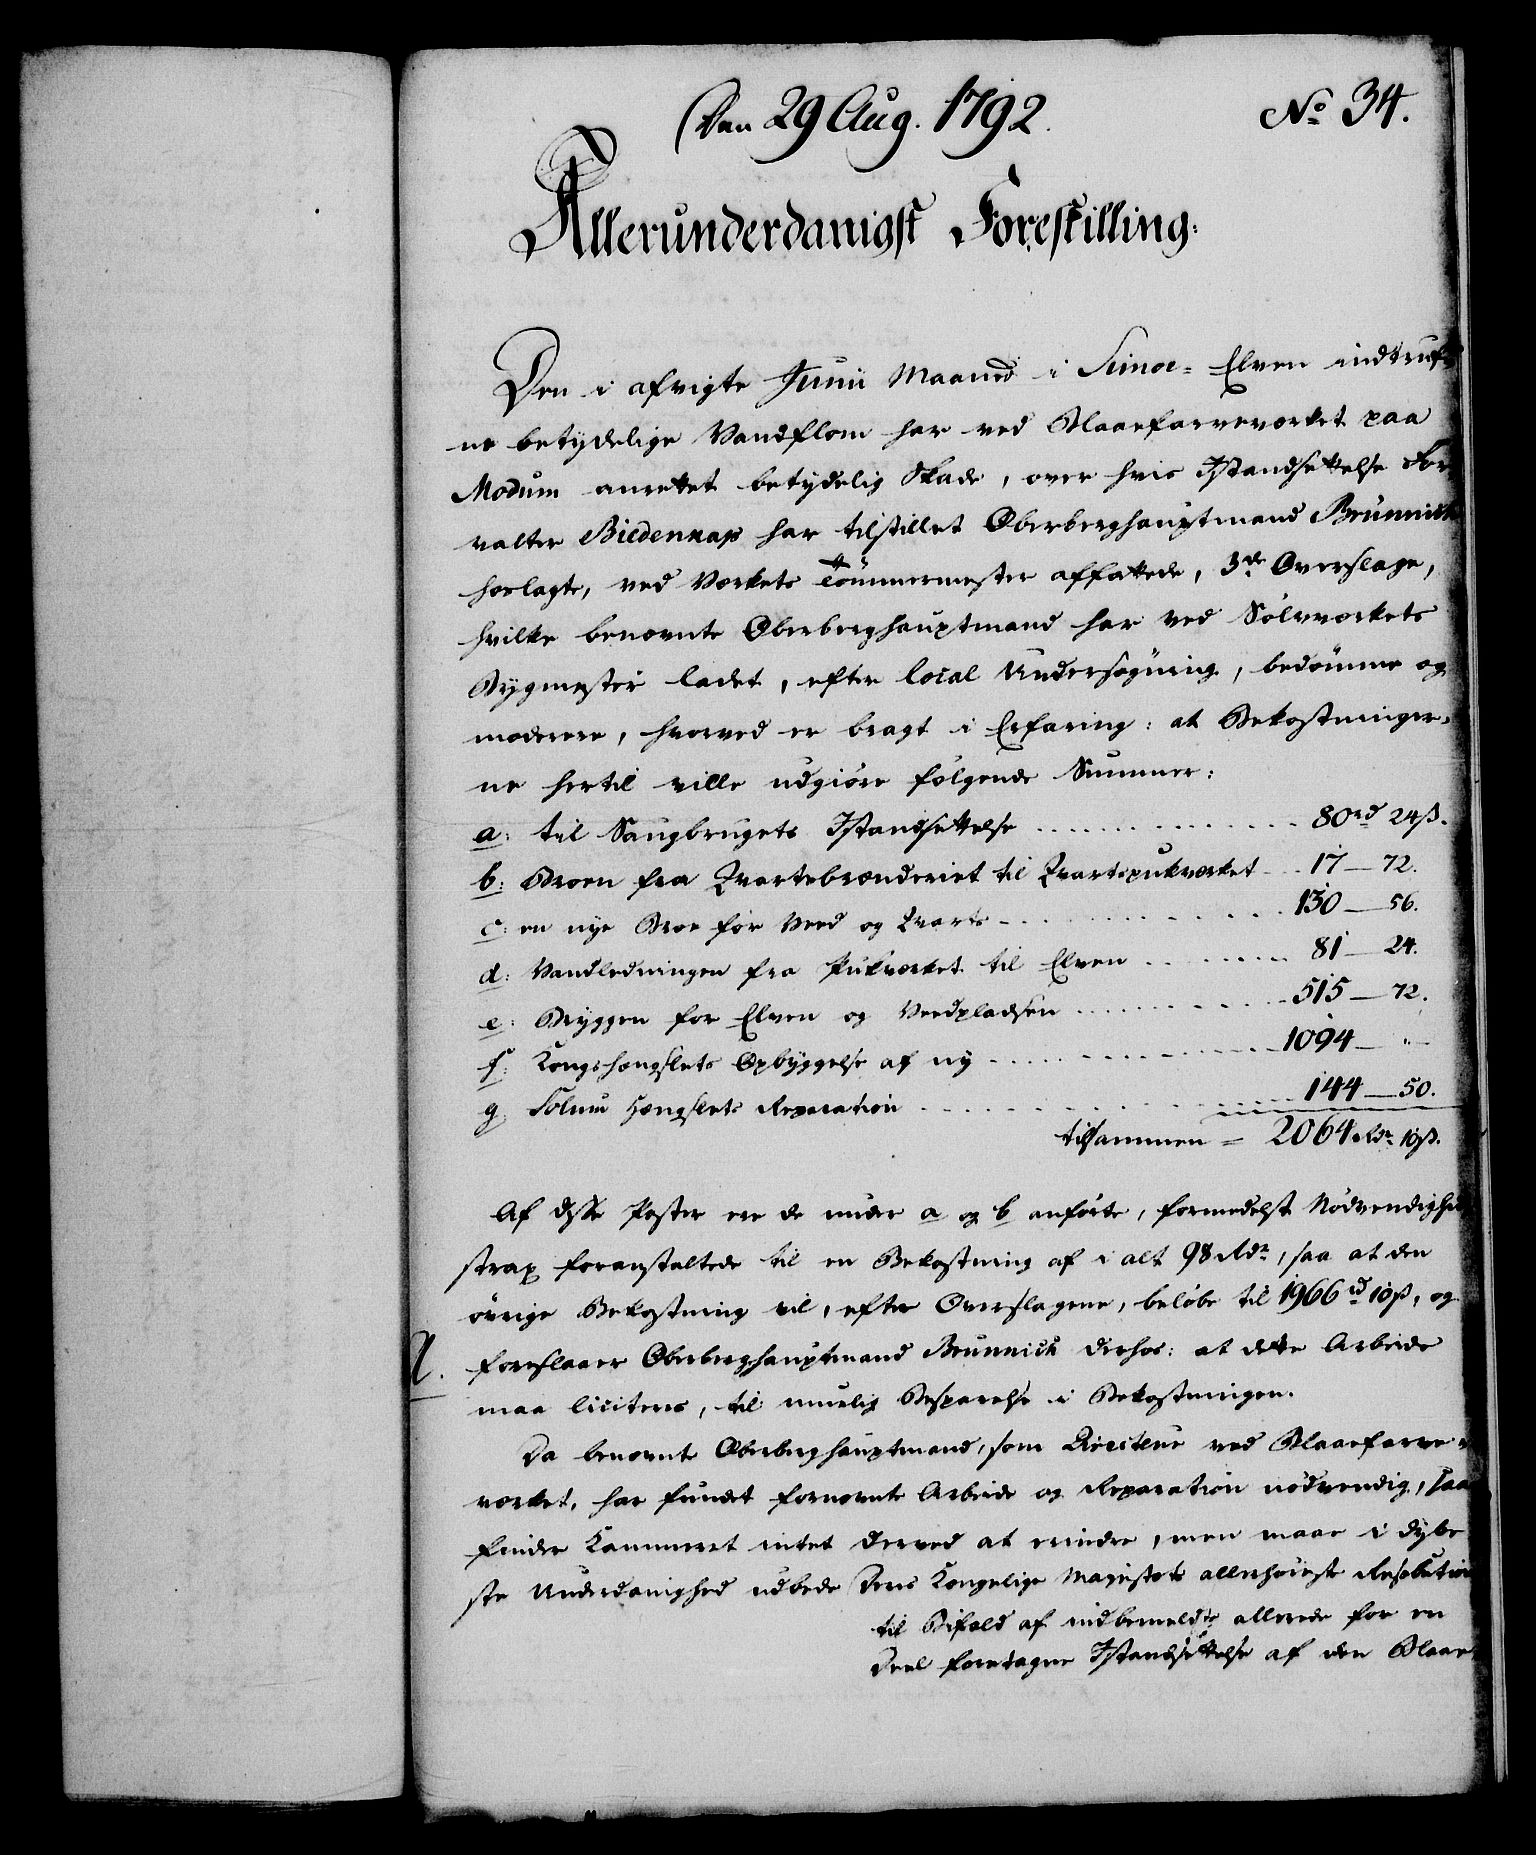 Den 29 Aug. 1792.
No 34.
Allerunderdanigst Forestilling:
Den i afvigte Junii Maaned i Simoe-Elven indtruf-
ne betydelige Vandflom har ved Blaaefarveværket paa
Modum anrettet betydelig Skade, over hvis Istandsættelse For-
valter Biedenkap har tilstillet Oberberghauptmand Brünnich
hoslagte, ved Værkets Tömmermester affattede, 3de Overslage,
hvilke benævnte Oberberghauptmand har ved Sölvværkets
Bygmester ladet, efter local Undersögning, bedömme og
moderere, hvorved er bragt i Erfaring: at Bekostninger-
ne hertil ville udgiöre fölgende Summer:
a: til Saugbrugets Istandsættelse 80 rd 24 ß.
b: Broen fra Qvartsbrænderiet til Qvartspukværket 17 — 72.
c: en nye Broe for Veed og Qvarts 130 — 56.
d: Vandledningen fra Pukværket til Elven 81 — 24.
e: Bryggen for Elven og Veedpladsen 515 — 72.
f: Kongshængslets Opbyggelse af ny 1094 — "
g: Solum Hængslets Reparation 144 — 50.
tilsammen = 2064 Rdr 10 ß.
Af disse Poster ere de under a og b anförte, formedelst Nödvendighed
strax foranstaltede til en Bekostning af i alt 98 Rdr, saa at den
övrige Bekostning vil, efter Overslagene, belöbe til 1966 rd 10 ß, og
foreslaaer Oberberghauptmand Brünnich derhos: at dette Arbeide
maa liciteres, til muelig Besparelse i Bekostningen.
Da benævnte Oberberghauptmand, som Directeur ved Blaaefarve-
værket, har fundet fornævnte Arbeide og Reparation nödvendig, saa
finder Kammeret intet derved at erindre, men maae i dybe-
ste Underdanighed udbede Deres Kongelige Majestæts allerhöieste Resolution
til Bifald af indbemeldte allerede for en
Deel foretagne Istandsættelse af den Blaae